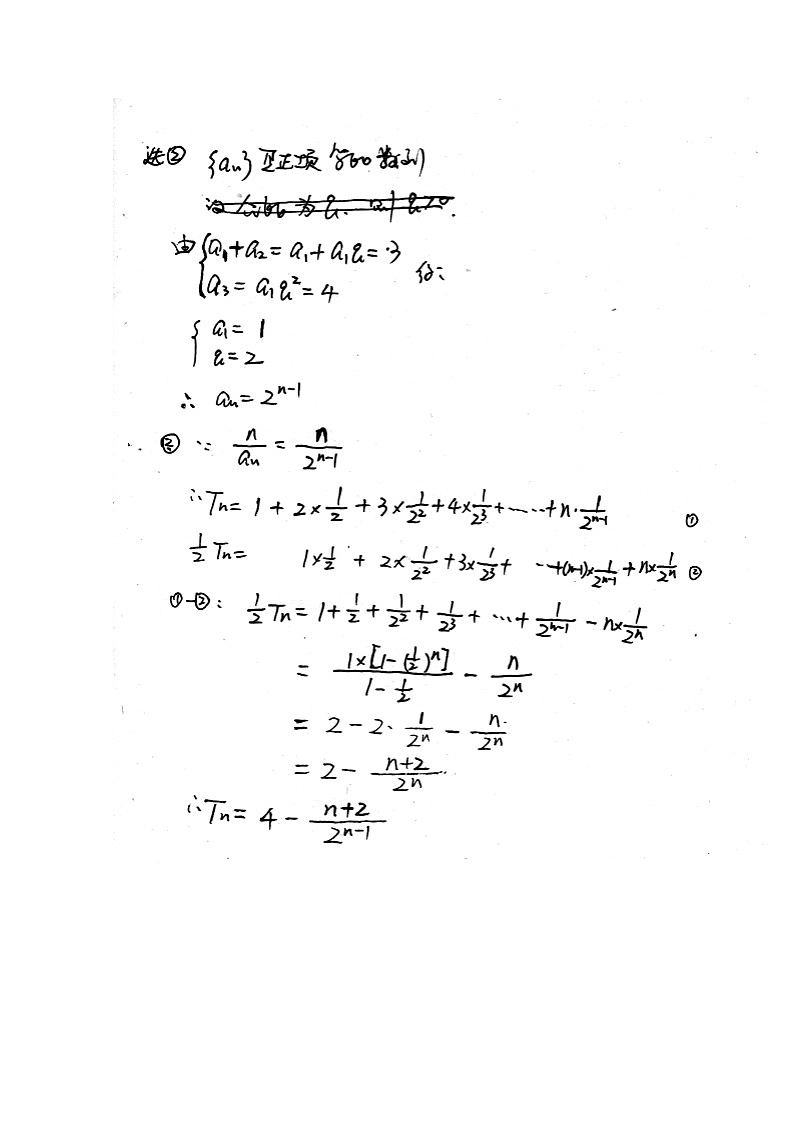 选② {aₙ}是正项等比数列
设公比为q. 则q>0.
由{a₁+a₂=a₁+a₁q=3
a₃=a₁q²=4 得:
{a₁=1
q=2
∴ aₙ=2ⁿ⁻¹
② ∵ n/aₙ = n/2ⁿ⁻¹
∴Tₙ=1+2×1/2+3×1/2²+4×1/2³+……+n·1/2ⁿ⁻¹ ①
1/2 Tₙ= 1×1/2+2×1/2²+3×1/2³+…+(n-1)×1/2ⁿ⁻¹+n×1/2ⁿ ②
①-②: 1/2 Tₙ=1+1/2+1/2²+1/2³+…+1/2ⁿ⁻¹-n×1/2ⁿ
= 1×[1-(1/2)ⁿ]/(1-1/2) - n/2ⁿ
= 2-2·1/2ⁿ-n/2ⁿ
= 2-(n+2)/2ⁿ
∴Tₙ=4-(n+2)/2ⁿ⁻¹